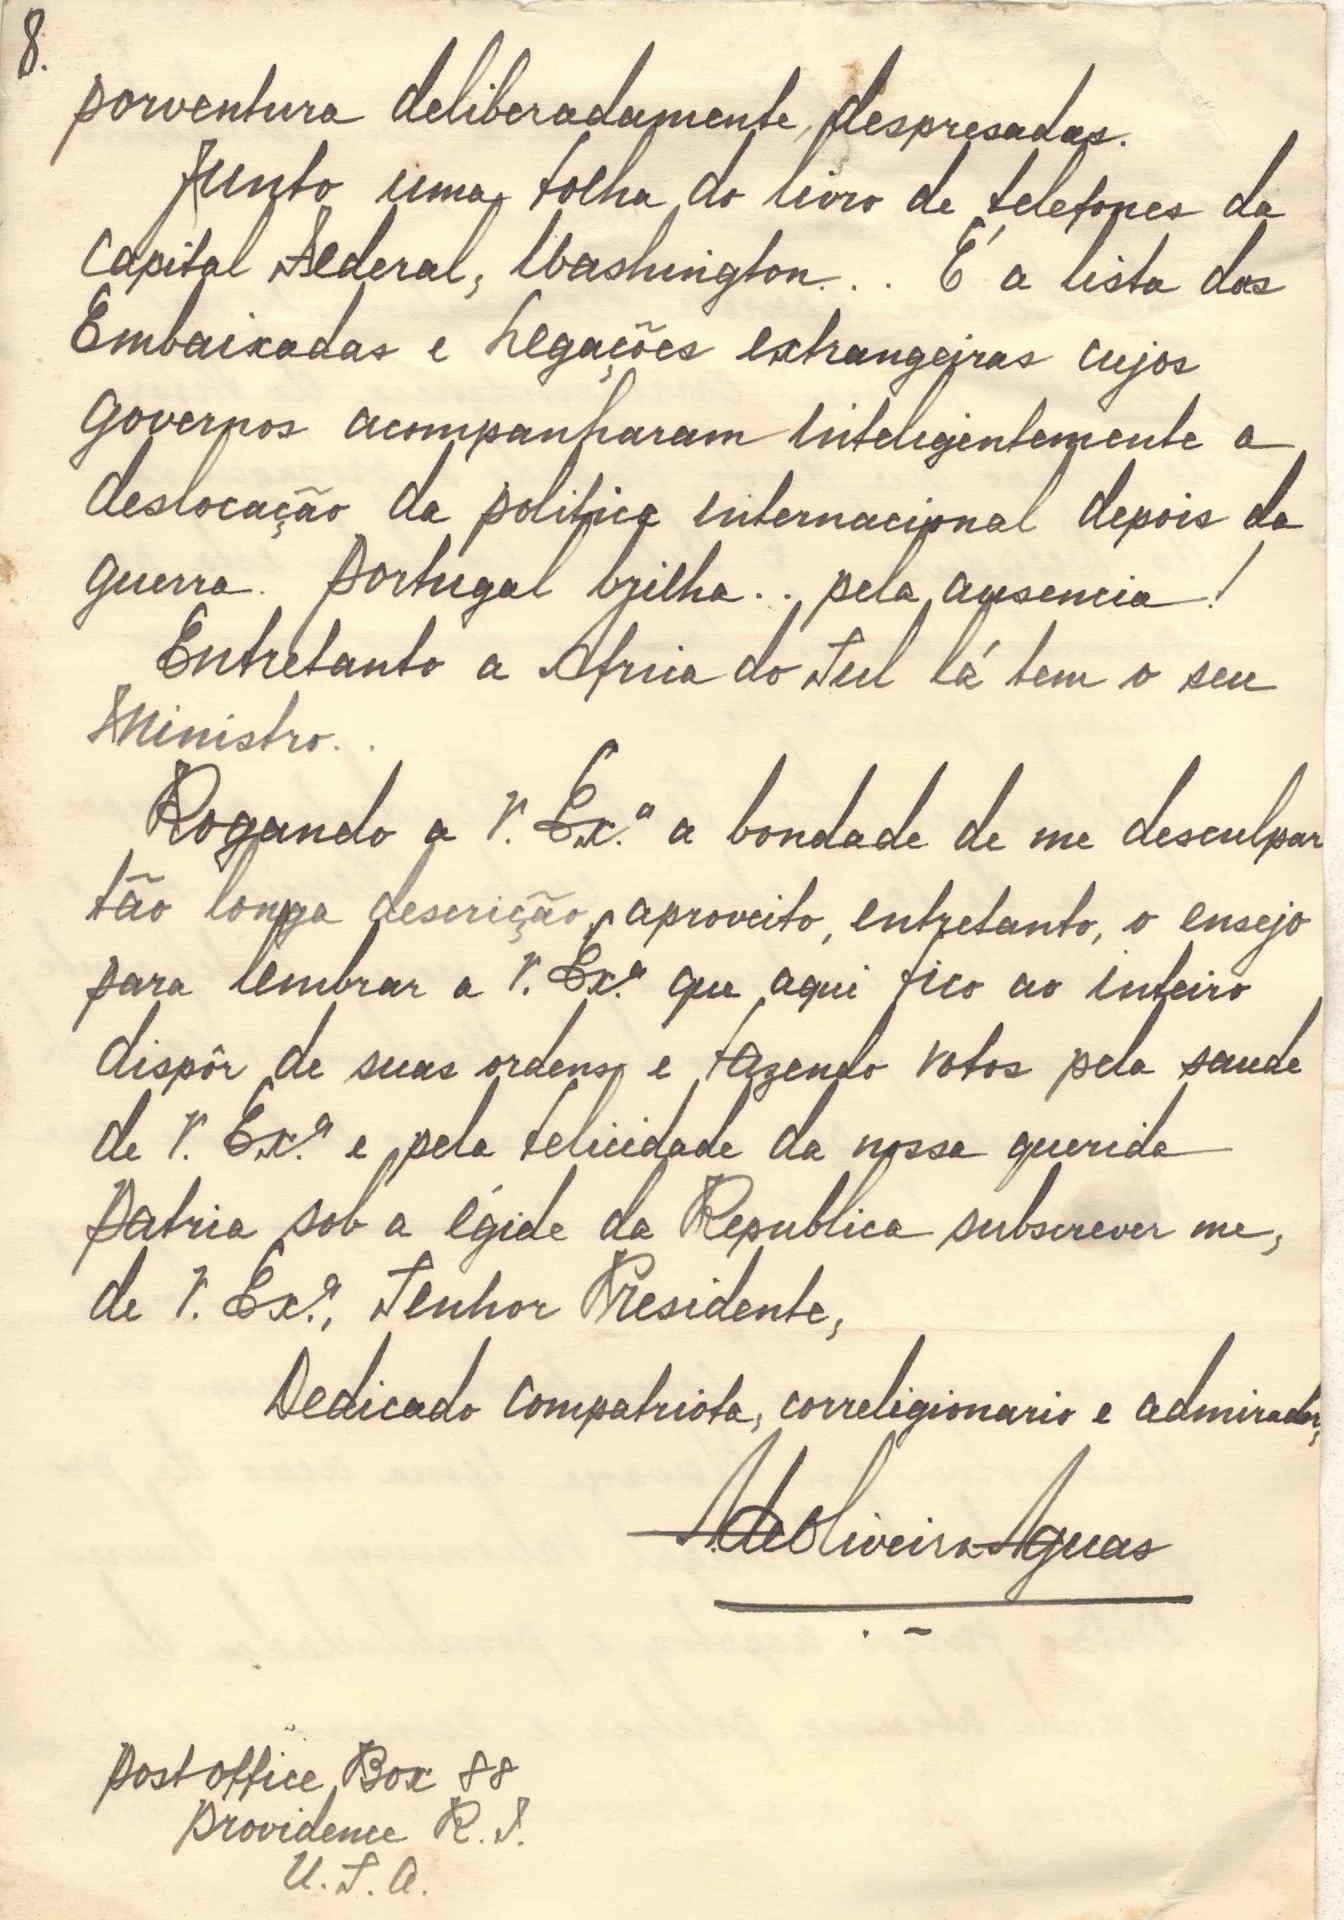 8.
porventura deliberadamente, despresadas.
Junto uma folha do livro de telefones da
Capital Federal, Washington... É a lista das
Embaixadas e Legações extrangeiras cujos
governos acompanharam inteligentemente a
deslocação da politica internacional depois da
guerra. Portugal brilha.. pela ausencia!
Entretanto a Africa do Sul lá tem o seu
Ministro..
Rogando a V. Ex.ª a bondade de me desculpar
tão longa descrição, aproveito, entretanto, o ensejo
para lembrar a V. Ex.ª que aqui fico ao inteiro
dispôr de suas ordens e fazendo votos pela saude
de V. Ex.ª e pela felicidade da nossa querida
Patria sob a égide da Republica subscrever me,
de V. Ex.ª, Senhor Presidente,
Dedicado compatriota, correligionario e admirador,
A de Oliveira Aguas
Post office Box 88
Providence R.I.
U.S.A.